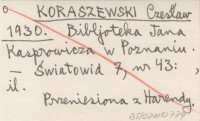 KORASZEWSKI Czesław
1930. Bibljoteka Jana
Kasprowicza w Poznaniu.
Światowid 7, nr 43: ,
il.
Przeniesiona z Harendy.